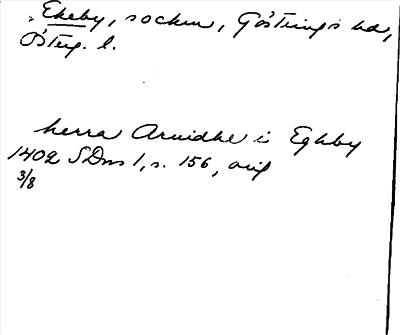 Ekeby, socken, Göstrings hd,
Österg. l.
herra Aruidhe i Eghby
1402 SDns 1, s. 156, orig
3/8